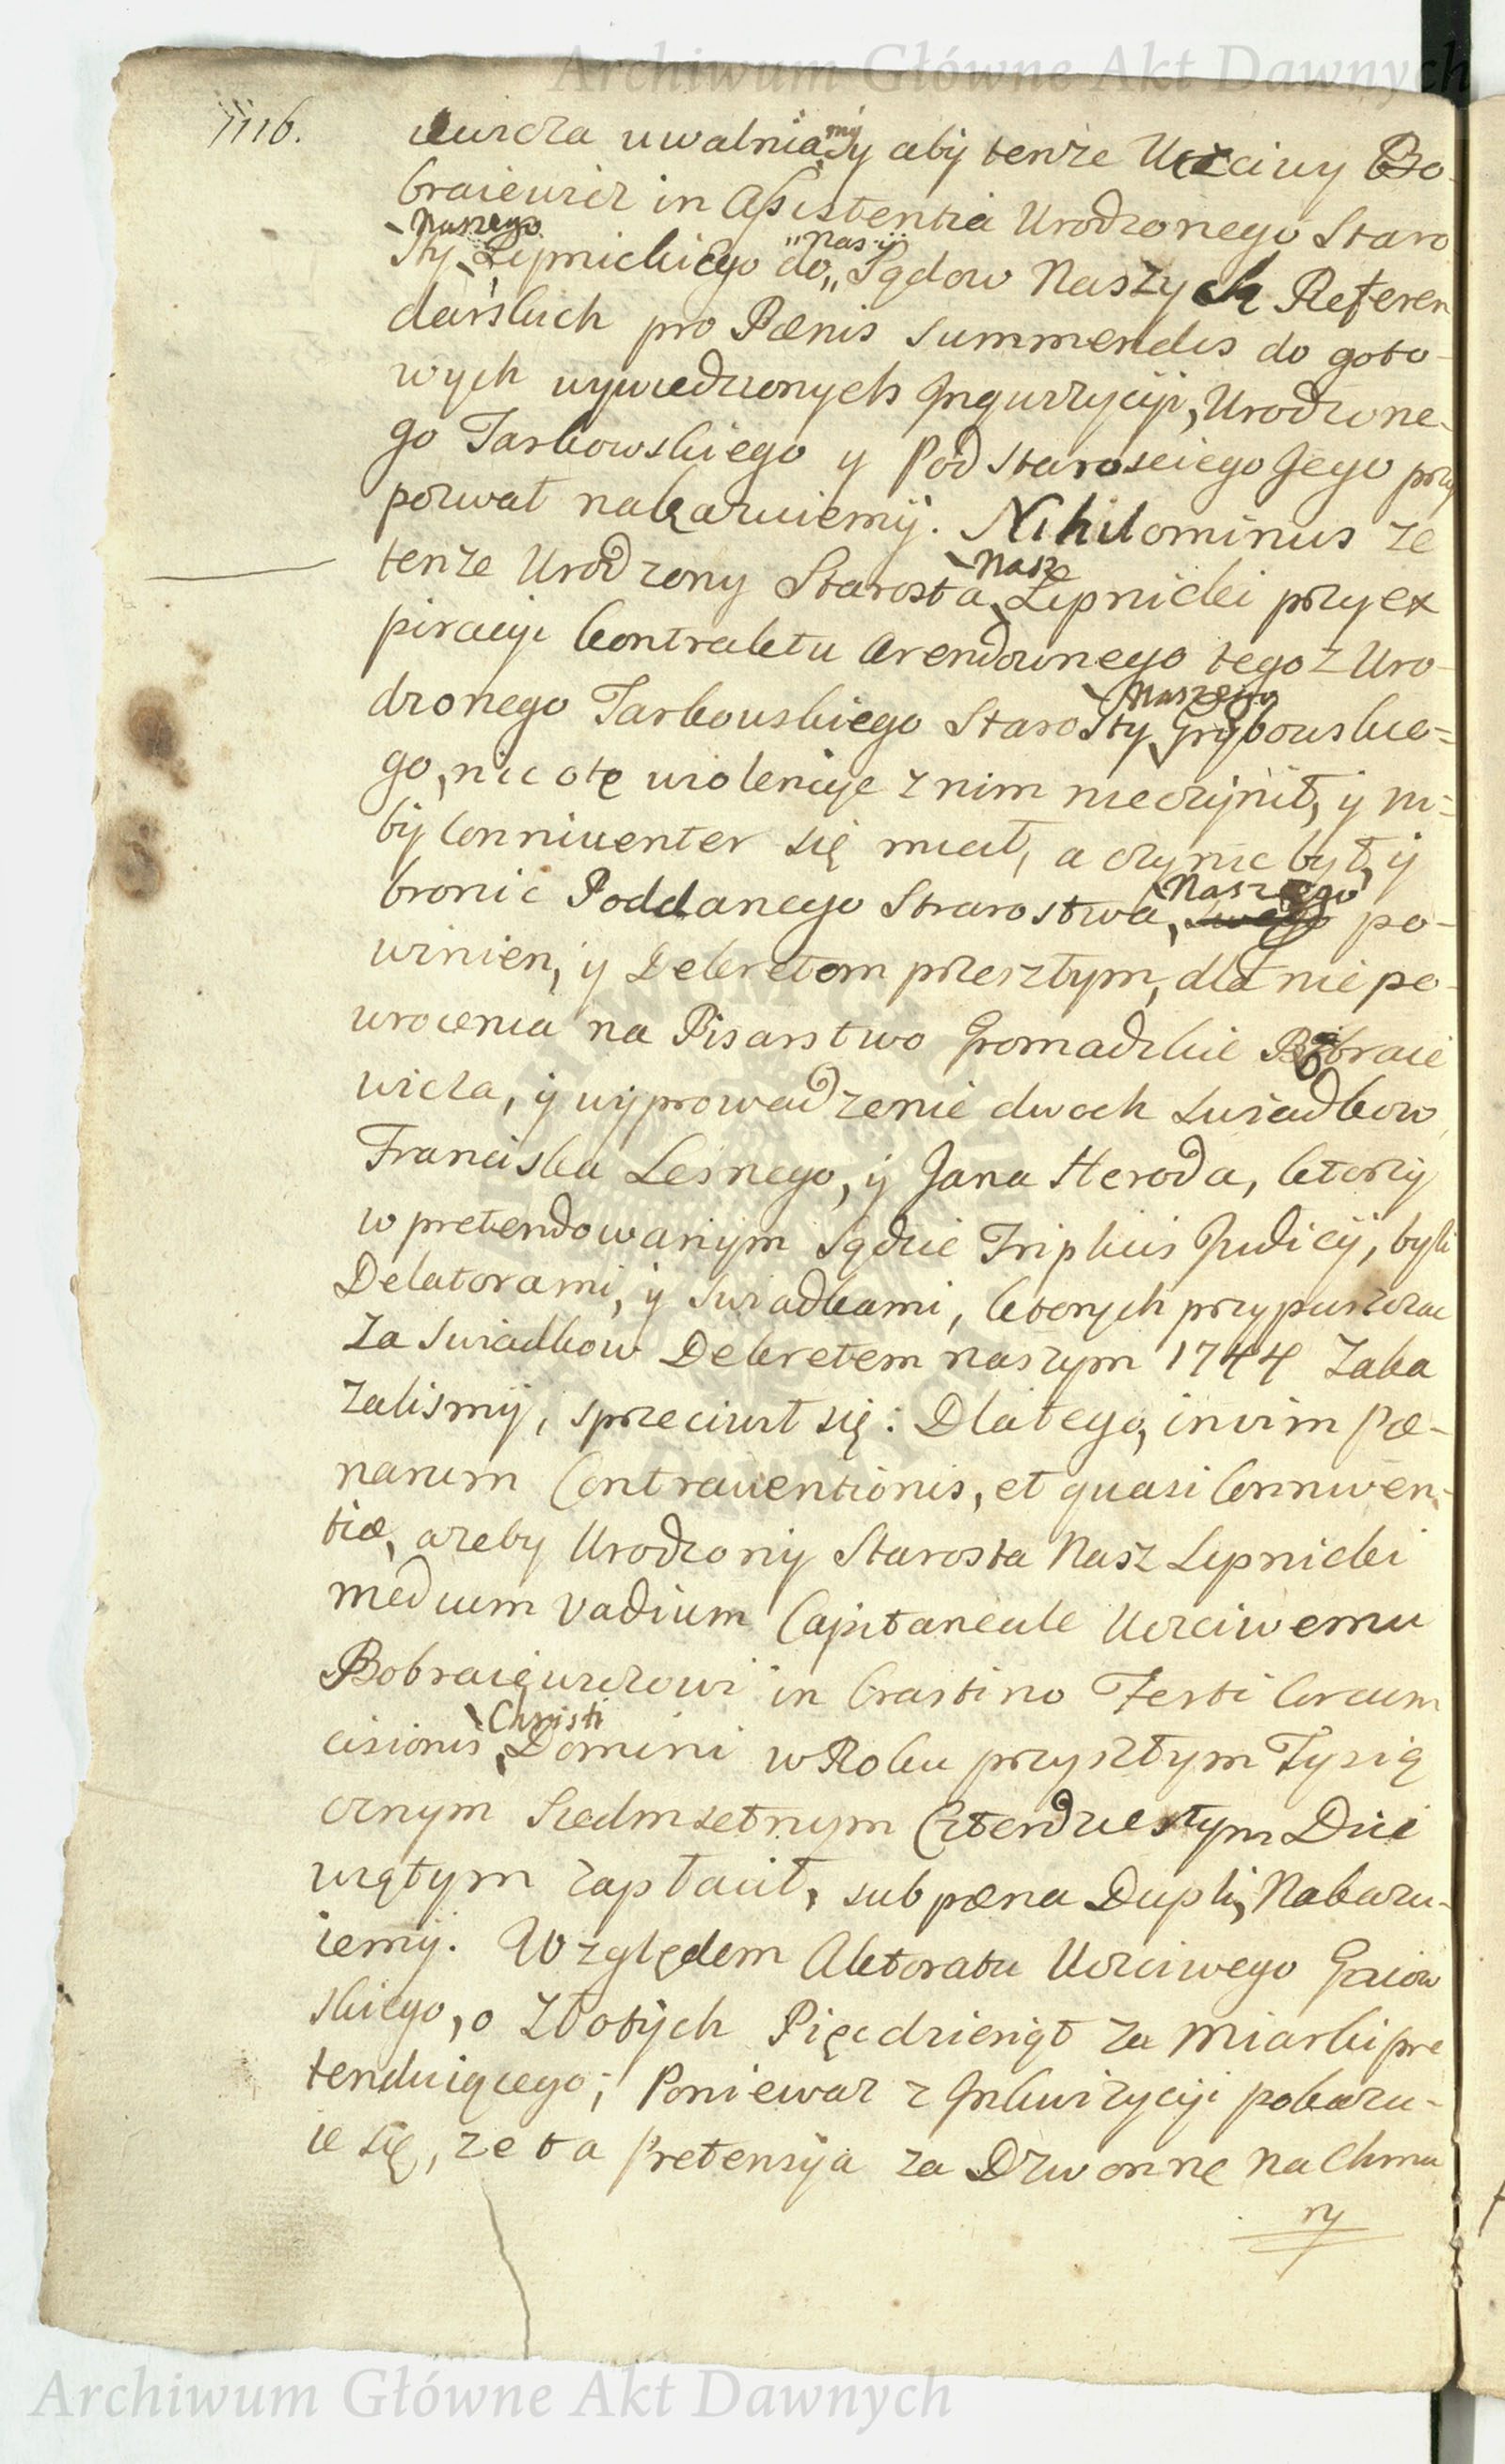 Archiwum Główne Akt Dawnych
1116.
ewicza uwalniamy aby tenże Uczciwy Bo-
braiewicz in Assistentia Urodzonego Staro
sty Naszego Lipnickiego do Sądow Naszych Referen
darskich pro Pœnis summendis do goto-
wych wywiedzionych Jnquizycyi, Urodzone-
go Tarkowskiego y Podstarosciego Jego przy
pozwał nakazuiemy. Nihilominus ze
tenze Urodzony Starosta Nasz Lipnicki przy ex
piracyi kontraktu Arendownego tegoz Uro-
dzonego Tarkowskiego Starosty Naszego Grybowskie=
go, nic o tę wiolencye z nim nieczynił, y ni=
by Conniventer się miał, a czynic był, y
bronic Poddanego Strarostwa Naszego po-
winien, y Dekretom przeszłym, dla nie po-
wrocenia na Pisarstwo Gromadzkie Bobraie
wicza, y wyprowadzenie dwoch swiadkow
Franciska Lesnego, y Jana Heroda, ktorzy
w pretendowanym Sądzie Triplicis Judicij, byli
Delatorami, y swiadkami, ktorych przypuszczac
za swiadkow Dekretem naszym 1744 zaka
zalismy, sprzeciwł się: Dlatego, in vim Pœ-
narum Contraventionis, et quasi Conniven-
tiæ, azeby Urodzony Starosta Nasz Lipnicki
medium Vadium Capitaneale Uczciwemu
Bobraiewiczowi in Crastino Festi Circum
cisionis Christi Domini w Roku przyszłym Tysią
cznym Siedmsetnym Czterdziestym Dzie
wiątym zapłacił, sub pœna Dupli, Nakazu-
iemy. Względem Aktoratu Uczciwego Gaiow
skiego, o Złotych Pięcdziesiąt za Miarki pre
tenduiącego; Poniewaz z Jnkwizycyi pokazu-
ie się, ze ta Pretensya za Dzwonne na Chmu
ry
Archiwum Główne Akt Dawnych